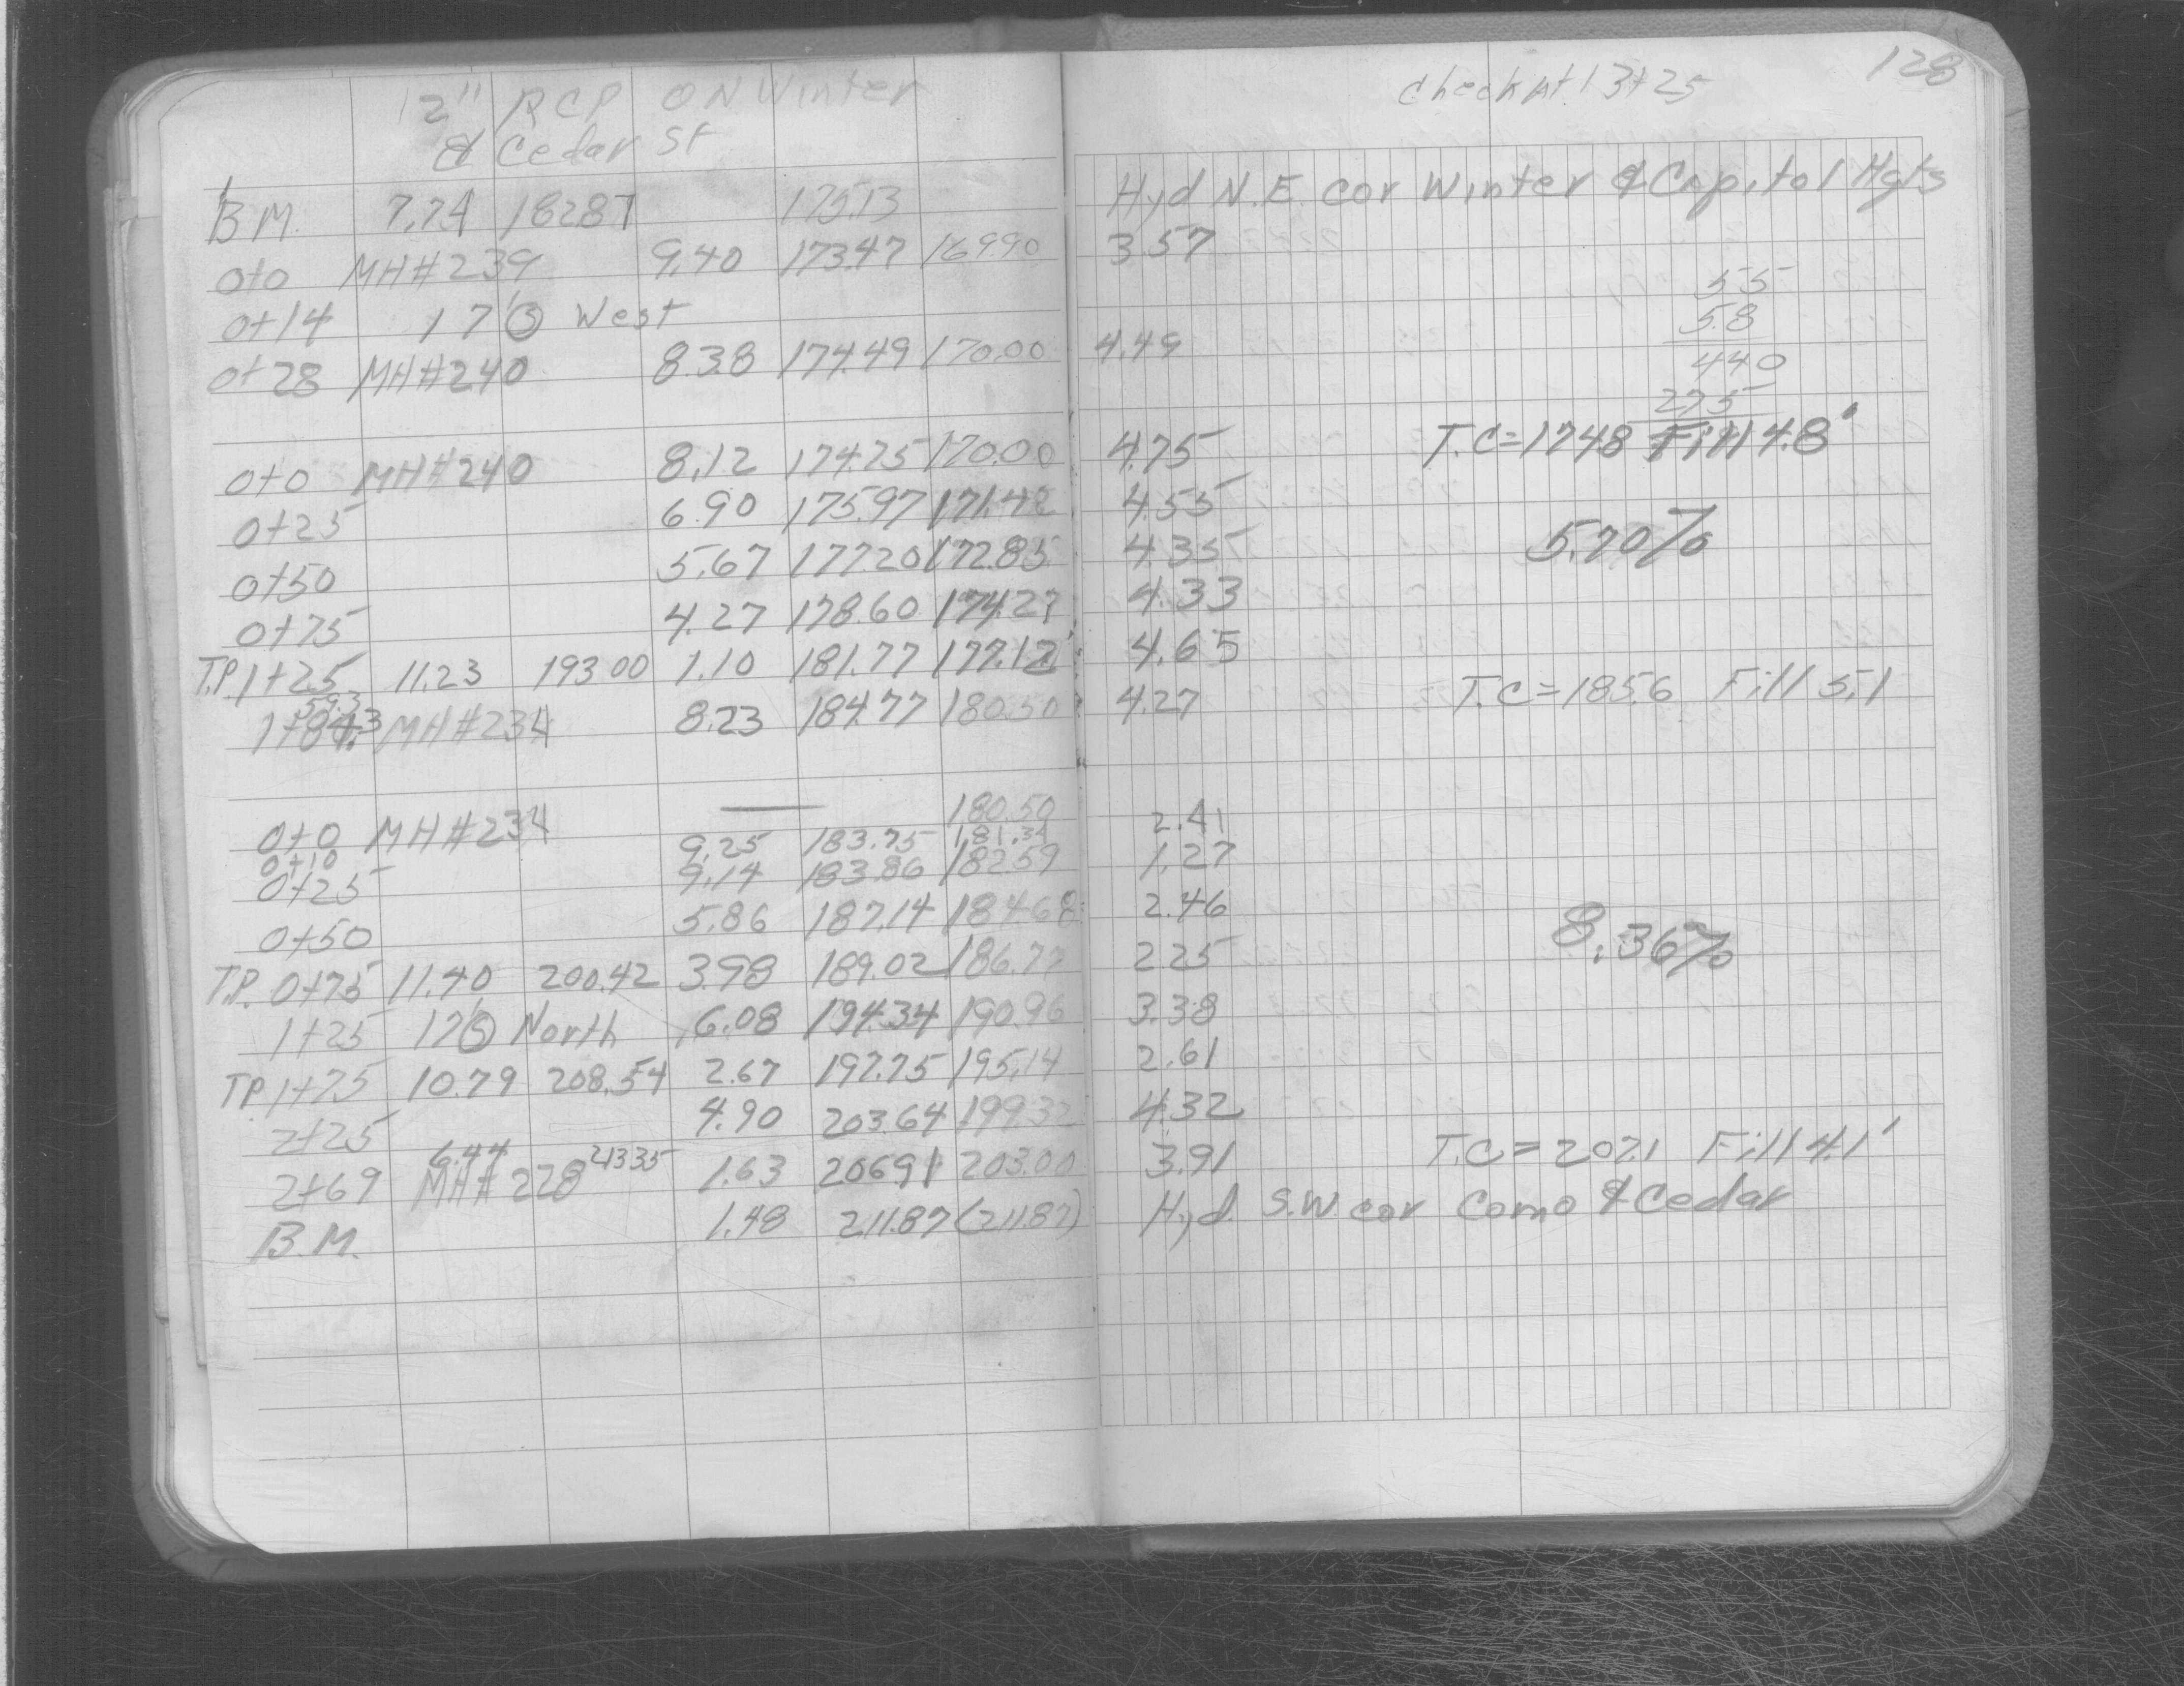 12" RCP ON Winter
& Cedar St
B M. 7.74 182.87 175.13
0+0 MH#239 9.40 173.47 169.90
0+14 17' Ⓢ West
0+28 MH#240 8.38 174.49 170.00
0+0 MH#240 8.12 174.75 170.00
0+25 6.90 175.97 171.42
0+50 5.67 177.20 172.85
0+75 4.27 178.60 174.27
T.P. 1+25 11.23 193.00 1.10 181.77 177.12
59.3
1+84.3 MH#234 8.23 184.77 180.50
0+0 MH#234 — 180.50
0+10 9.25 183.75 181.34
0+25 9.14 183.86 182.59
0+50 5.86 187.14 184.68
T.P. 0+75 11.40 200.42 3.98 189.02 186.77
1+25 17' Ⓢ North 6.08 194.34 190.96
TP. 1+75 10.79 208.54 2.67 197.75 195.14
2+25 4.90 203.64 199.32
6.44 213.35
2+69 MH#228 1.63 206.91 203.00
B.M. 1.48 211.87 (211.87)
128
check pt. 13+25
Hyd N.E. cor Winter & Capitol Hgts
3.57
55
58
4.49
440
275
4.75 T.C=174.8 Fill 4.8'
4.55
4.35 5.70%
4.33
4.65
4.27 T.C=185.6 Fill 5.1
2.41
1.27
2.46
8.36%
2.25
3.38
2.61
4.32
3.91 T.C=207.1 Fill 4.1'
Hyd. S.W. cor Como & Cedar